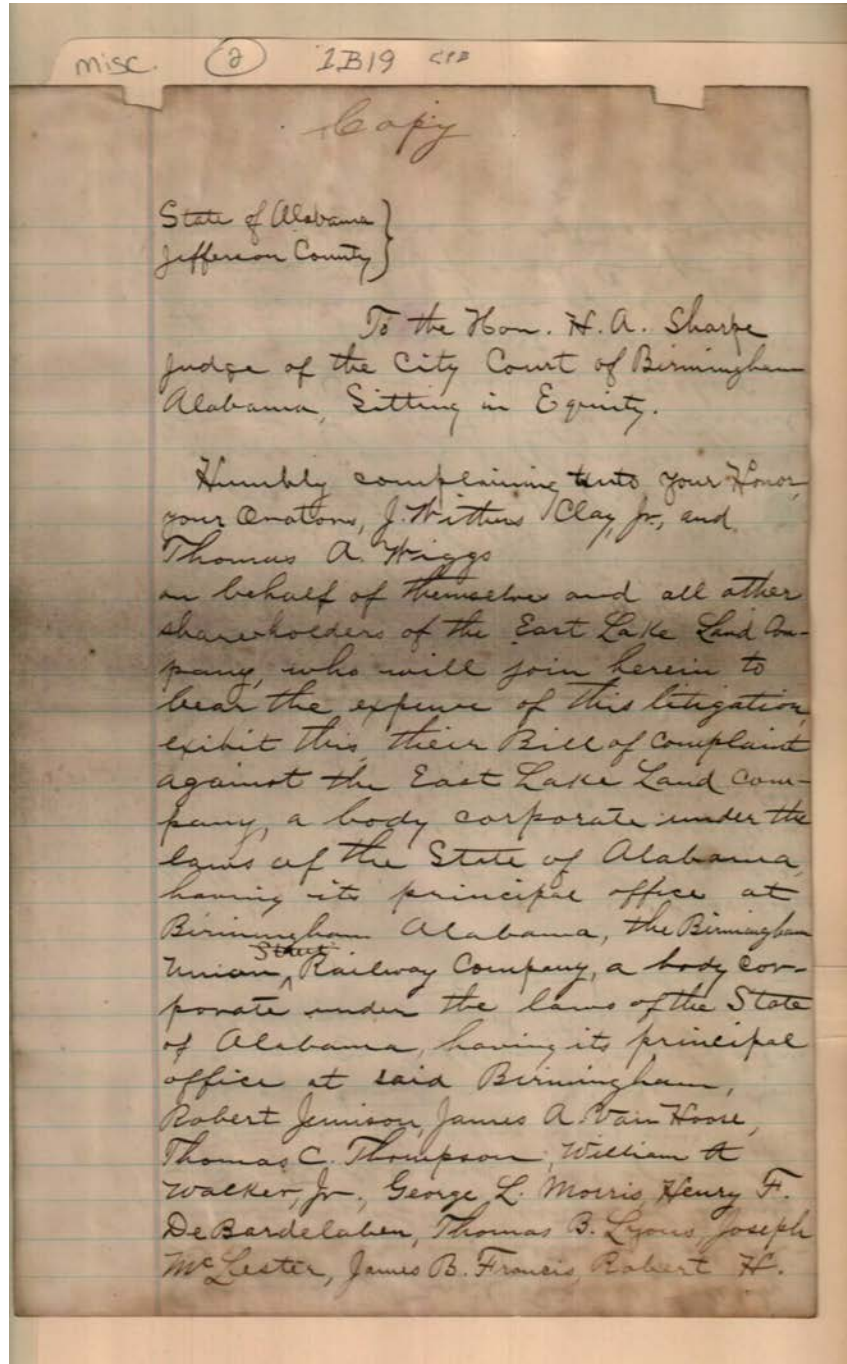 misc. 2 IB19 CPB
Copy
State of Alabama }
Jefferson County }
To the Hon. H. A. Sharpe
Judge of the City Court of Birmingham
Alabama, Sitting in Equity.
Humbly complaining unto your Honor,
your Orators, J. Withers Clay, Jr., and
Thomas A. Wiggs
on behalf of themselves and all other
shareholders of the East Lake Land Com-
pany, who will join herein to
bear the expense of this litigation,
exibit this, their Bill of Complaint
against the East Lake Land Com-
pany, a body corporate under the
laws of the State of Alabama,
having its principal office at
Birmingham Alabama, the Birmingham
Street
Union ^ Railway Company, a body cor-
porate under the laws of the State
of Alabama, having its principal
office at said Birmingham,
Robert Jemison, James A. Van Hoose,
Thomas C. Thompson, William A
Walker, Jr., George L. Morris, Henry F.
DeBardelaben, Thomas B. Lyons, Joseph
McLester, James B. Francis, Robert H.